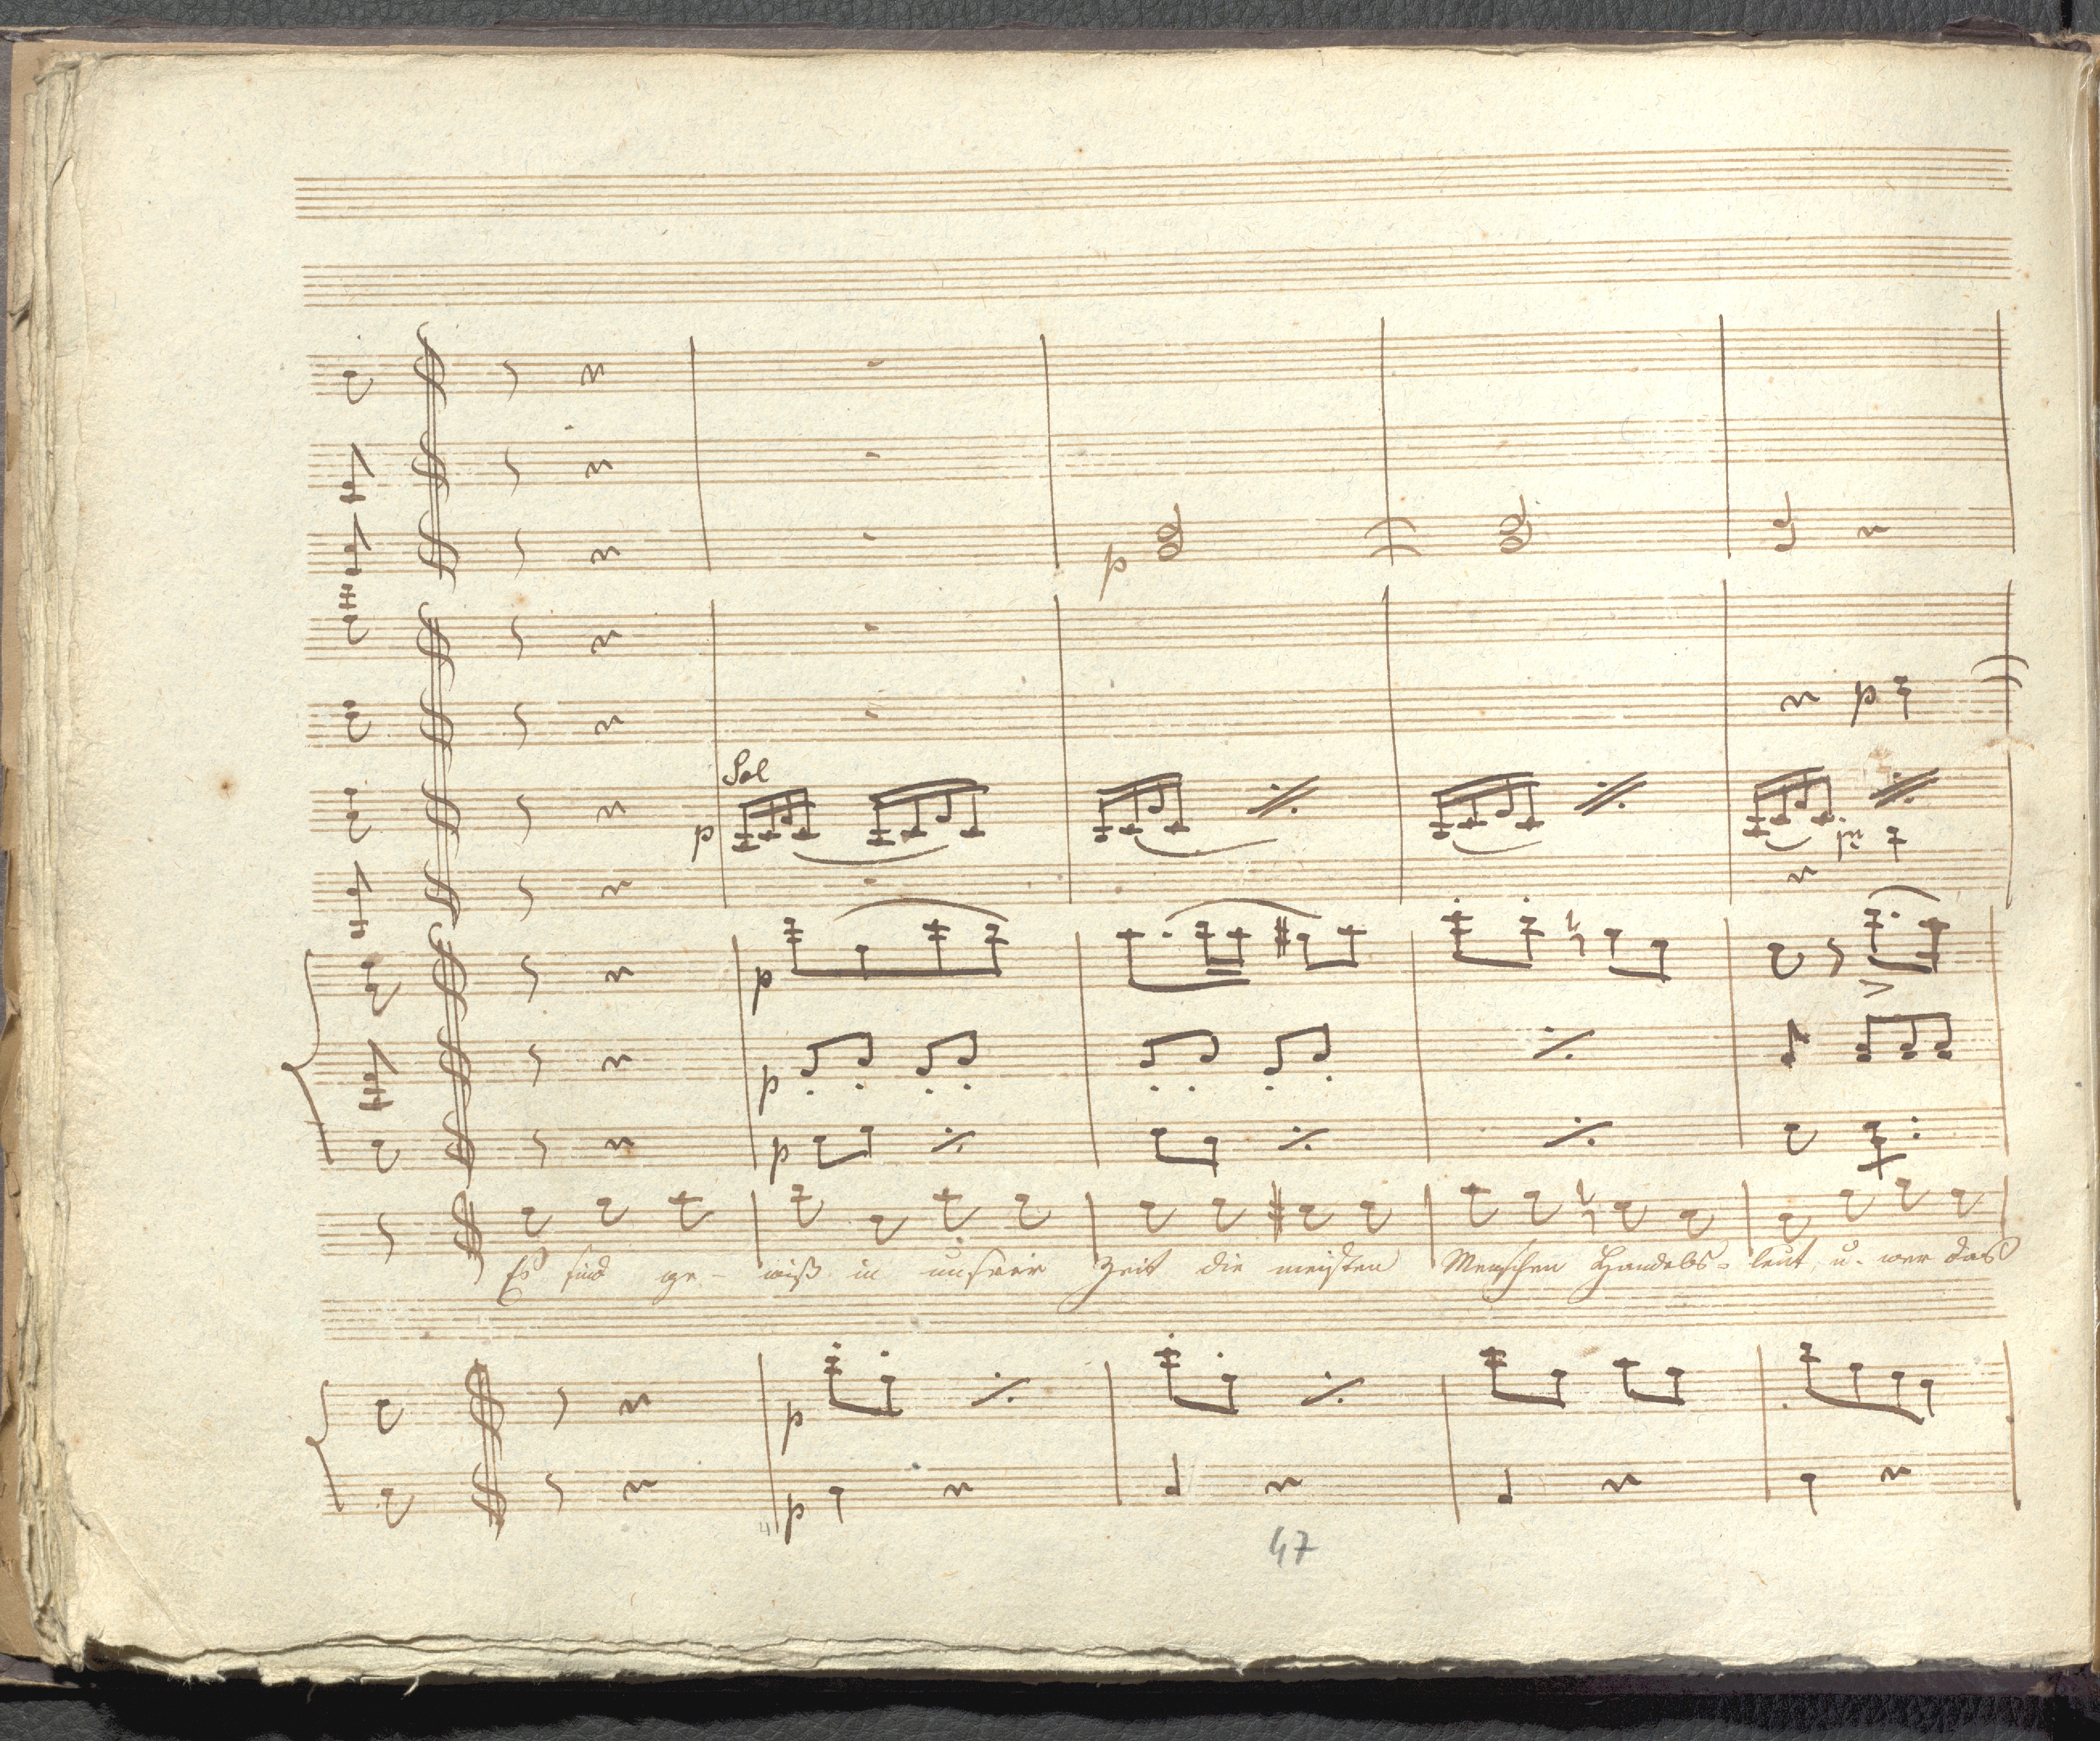 p
p
Sol
p
p
p
p
Es sind ge- wiß in unsrer Zeit die meisten Menschen Handels- leut, u. wer das
p
p
47